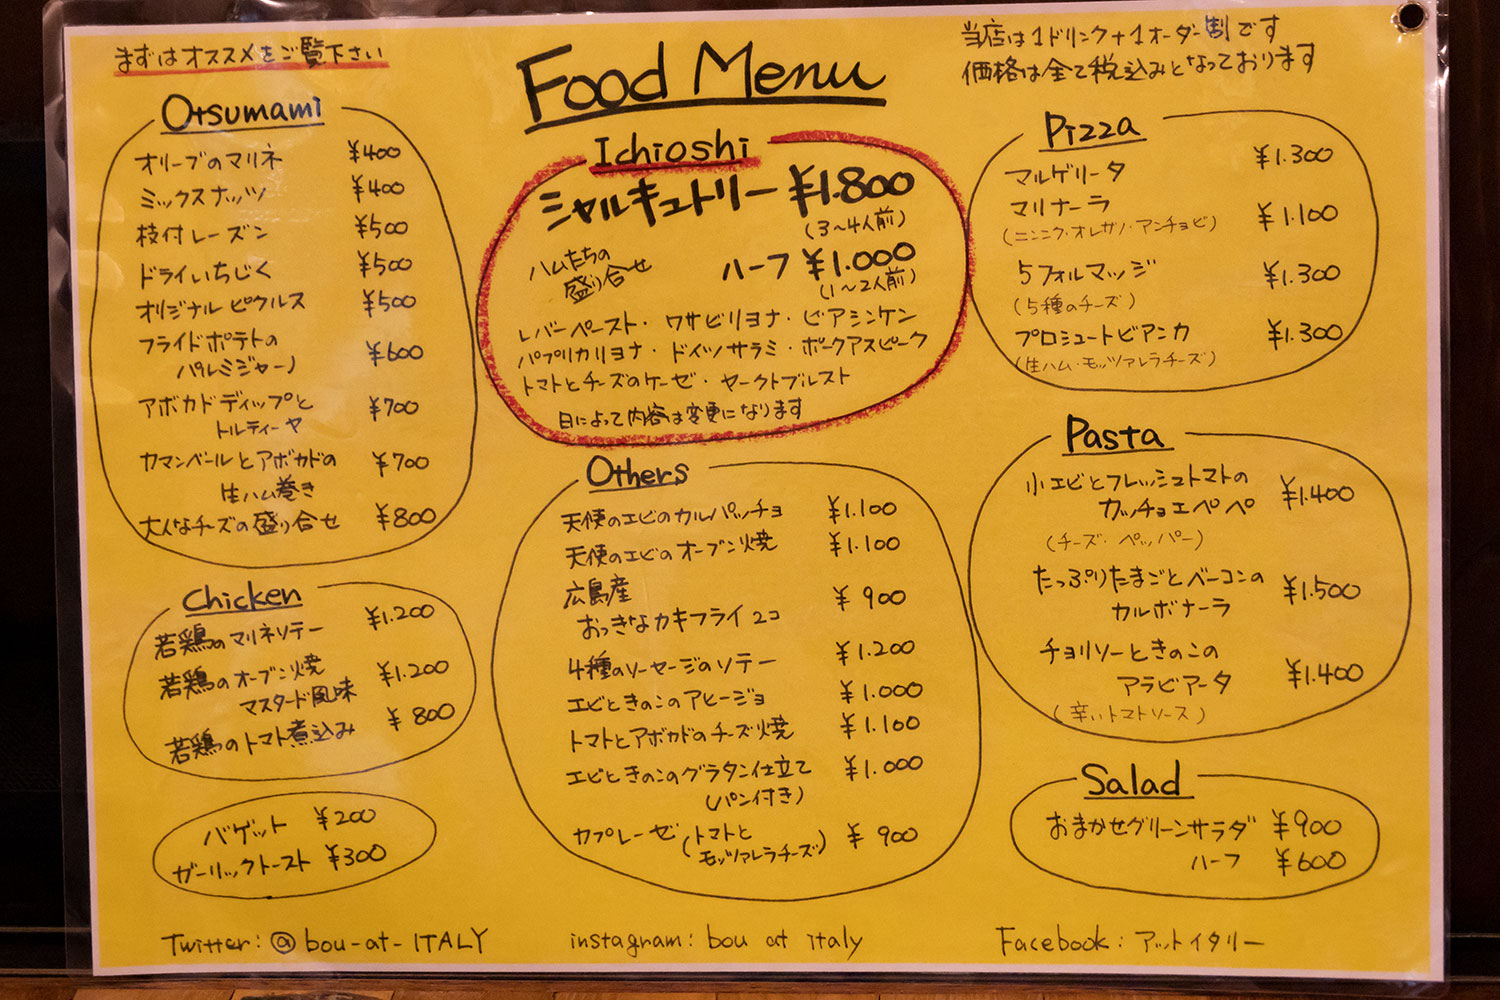 まずはオススメをご覧下さい
Food Menu
当店は1ドリンク+1オーダー制です
価格は全て税込みとなっております
Otsumami
オリーブのマリネ ¥400
ミックスナッツ ¥400
枝付レーズン ¥500
ドライいちじく ¥500
オリジナルピクルス ¥500
フライドポテトの
パルミジャーノ ¥600
アボカドディップと
トルティーヤ ¥700
カマンベールとアボカドの
生ハム巻き ¥700
大人なチーズの盛り合せ ¥800
Chicken
若鶏のマリネソテー ¥1.200
若鶏のオーブン焼
マスタード風味 ¥1.200
若鶏のトマト煮込み ¥800
バゲット ¥200
ガーリックトースト ¥300
Ichioshi
シャルキュトリー ¥1.800
(3~4人前)
ハムたちの
盛り合せ
ハーフ ¥1.000
(1~2人前)
レバーペースト・ワサビリヨナ・ビアシンケン
パプリカリヨナ・ドイツサラミ・ポークアスピーク
トマトとチーズのケーゼ・ヤークトブルスト
日によって内容は変更になります
Others
天使のエビのカルパッチョ ¥1.100
天使のエビのオーブン焼 ¥1.100
広島産
おっきなカキフライ 2コ ¥900
4種のソーセージのソテー ¥1.200
エビときのこのアヒージョ ¥1.000
トマトとアボカドのチーズ焼 ¥1.100
エビときのこのグラタン仕立て ¥1.000
(パン付き)
カプレーゼ(トマトと
モッツァレラチーズ) ¥900
Pizza
マルゲリータ ¥1.300
マリナーラ ¥1.100
(ニンニク・オレガノ・アンチョビ)
5フォルマッジ ¥1.300
(5種のチーズ)
プロシュートビアンカ ¥1.300
(生ハム・モッツァレラチーズ)
Pasta
小エビとフレッシュトマトの
カッチョエペペ ¥1.400
(チーズ・ペッパー)
たっぷりたまごとベーコンの
カルボナーラ ¥1.500
チョリソーときのこの
アラビアータ ¥1.400
(辛いトマトソース)
Salad
おまかせグリーンサラダ ¥900
ハーフ ¥600
Twitter: @bou-at-ITALY
instagram: bou at italy
Facebook: アットイタリー